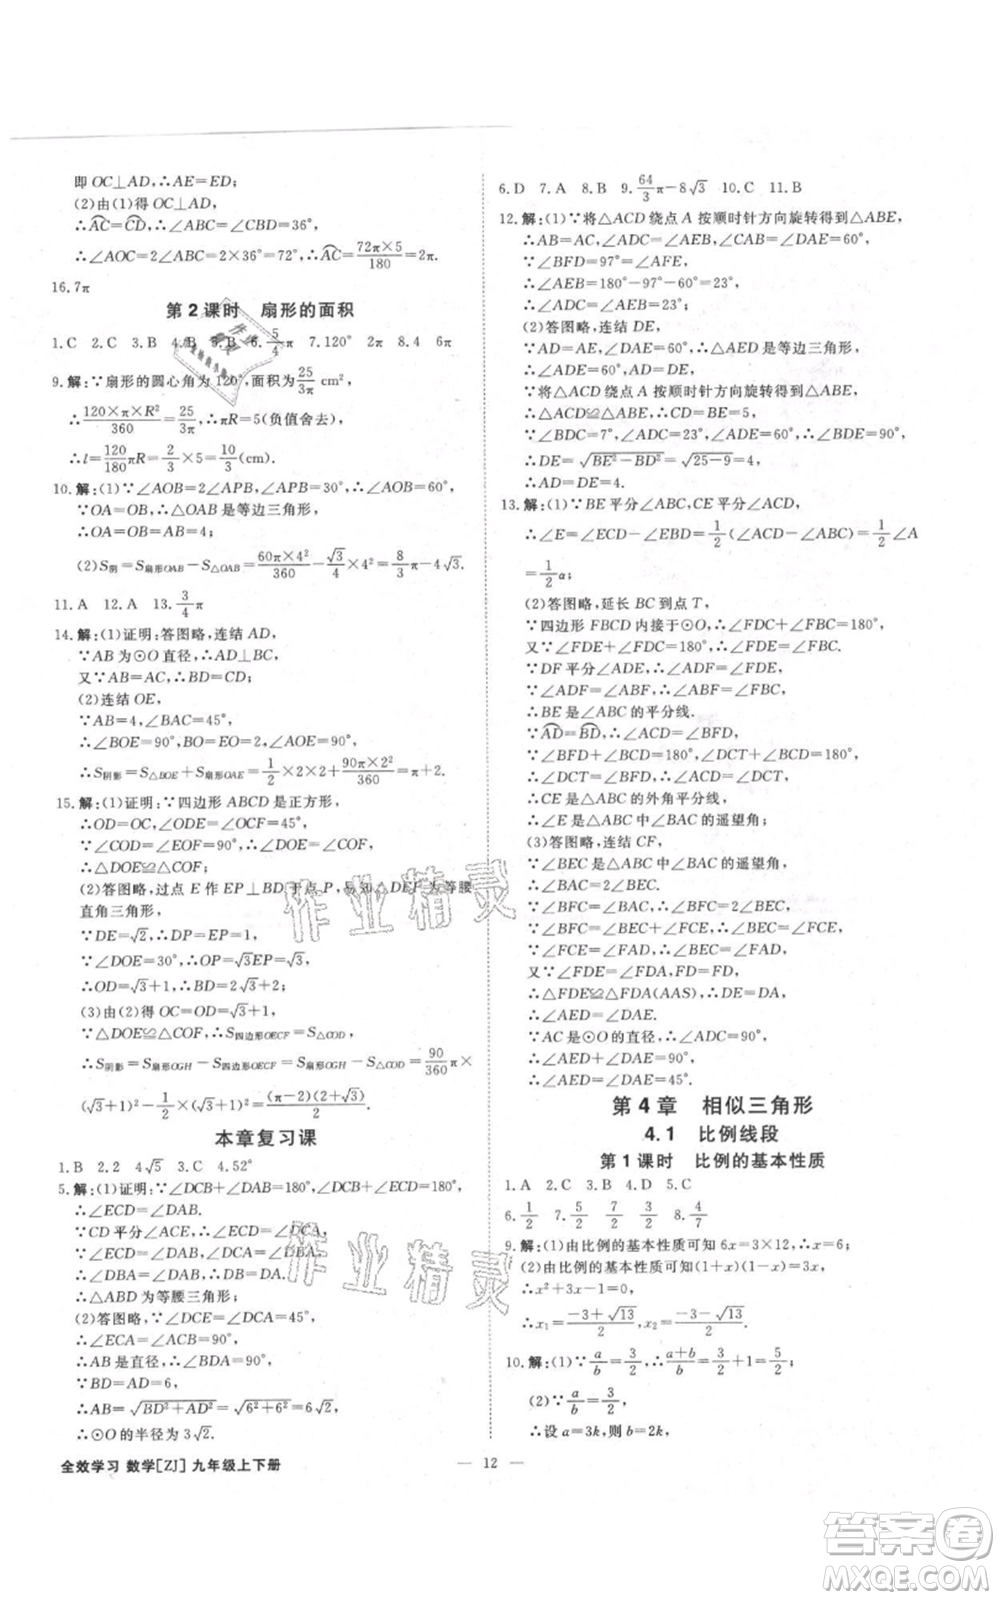 即 OC⊥AD,∴AE=ED;
(2)由(1)得 OC⊥AD,
∴AC=CD,∴∠ABC=∠CBD=36°,
∴∠AOC=2∠ABC=2×36°=72°,∴AC=72π×5/180=2π.
16.7π
第 2 课时 扇形的面积
1.C 2.C 3.B 4.B 5.B 6.5/4π 7.120° 2π 8.4 6π
9.解:∵扇形的圆心角为 120°,面积为25/3π cm²,
∴120×π×R²/360=25/3π,∴πR=5(负值舍去),
∴l=120/180πR=2/3×5=10/3(cm).
10.解:(1)∵∠AOB=2∠APB,∠APB=30°,∴∠AOB=60°,
∵OA=OB,∴△OAB 是等边三角形,
∴OA=OB=AB=4;
(2)S阴=S扇形OAB-S△OAB=60π×4²/360-√3/4×4²=8/3π-4√3.
11.A 12.A 13.3/4π
14.解:(1)证明:答图略,连结 AD,
∵AB 为⊙O 直径,∴AD⊥BC,
又∵AB=AC,∴BD=CD;
(2)连结 OE,
∵AB=4,∠BAC=45°,
∴∠BOE=90°,BO=EO=2,∠AOE=90°,
∴S阴影=S△BOE+S扇形OAE=1/2×2×2+90π×2²/360=π+2.
15.解:(1)证明:∵四边形 ABCD 是正方形,
∴OD=OC,∠ODE=∠OCF=45°,
∵∠COD=∠EOF=90°,∴∠DOE=∠COF,
∴△DOE≌△COF;
(2)答图略,过点 E 作 EP⊥BD 于点 P,易知△DEP 为等腰
直角三角形,
∵DE=√2,∴DP=EP=1,
∵∠DOE=30°,∴OP=√3EP=√3,
∴OD=√3+1,∴OC=√3+1;
(3)由(2)得 OC=OD=√3+1,
∵△DOE≌△COF,∴S四边形OECF=S△COD,
∴S阴影=S扇形OGH-S四边形OECF=S扇形OGH-S△COD=90/360π×
(√3+1)²-1/2×(√3+1)²=(π-2)(2+√3)/2.
本章复习课
1.B 2.2 4√5 3.C 4.52°
5.解:(1)证明:∵∠DCB+∠DAB=180°,∠DCB+∠ECD=180°,
∴∠ECD=∠DAB.
∵CD平分∠ACE,∴∠ECD=∠DCA,
∴∠DAB=∠DCA,∵∠DCA=∠DBA,
∴∠DBA=∠DAB,∴DB=DA,
∴△ABD 为等腰三角形;
(2)答图略,∵∠DCE=∠DCA=45°,
∴∠ECA=∠ACB=90°,
∴AB 是直径,∴∠BDA=90°,
∵BD=AD=6,
∴AB=√BD²+AD²=√6²+6²=6√2,
∴⊙O 的半径为 3√2.
6.D 7.A 8.B 9.64/3π-8√3 10.C 11.B
12.解:(1)∵将△ACD 绕点 A 按顺时针方向旋转得到△ABE,
∴AB=AC,∠ADC=∠AEB,∠CAB=∠DAE=60°,
∵∠BFD=97°=∠AFE,
∴∠AEB=180°-97°-60°=23°,
∴∠ADC=∠AEB=23°;
(2)答图略,连结 DE,
∵AD=AE,∠DAE=60°,∴△AED是等边三角形,
∴∠ADE=60°,AD=DE,
∵将△ACD 绕点 A 按顺时针方向旋转得到△ABE,
∴△ACD≌△ABE,∴CD=BE=5,
∵∠BDC=7°,∠ADC=23°,∠ADE=60°,∴∠BDE=90°,
∴DE=√BE²-BD²=√25-9=4,
∴AD=DE=4.
13.解:(1)∵BE平分∠ABC,CE平分∠ACD,
∴∠E=∠ECD-∠EBD=1/2(∠ACD-∠ABC)=1/2∠A
=1/2α;
(2)答图略,延长 BC到点 T,
∵四边形 FBCD 内接于⊙O,∴∠FDC+∠FBC=180°,
又∵∠FDE+∠FDC=180°,∴∠FDE=∠FBC,
∵DF 平分∠ADE,∴∠ADF=∠FDE,
∵∠ADF=∠ABF,∴∠ABF=∠FBC,
∴BE是∠ABC 的平分线.
∵AD=BD,∴∠ACD=∠BFD,
∵∠BFD+∠BCD=180°,∠DCT+∠BCD=180°,
∴∠DCT=∠BFD,∴∠ACD=∠DCT,
∴CE是△ABC 的外角平分线,
∴∠E是∠ABC 中∠BAC 的遥望角;
(3)答图略,连结 CF,
∵∠BEC 是△ABC 中∠BAC 的遥望角,
∴∠BAC=2∠BEC,
∵∠BFC=∠BAC,∴∠BFC=2∠BEC,
∵∠BFC=∠BEC+∠FCE,∴∠BEC=∠FCE,
∵∠FCE=∠FAD,∴∠BEC=∠FAD,
又∵∠FDE=∠FDA,FD=FD,
∴△FDE≌△FDA(AAS),∴DE=DA,
∴∠AED=∠DAE.
∵AC是⊙O 的直径,∴∠ADC=90°,
∴∠AED+∠DAE=90°,
∴∠AED=∠DAE=45°.
第 4 章 相似三角形
4.1 比例线段
第 1 课时 比例的基本性质
1.A 2.C 3.B 4.D 5.C
6.1/2 7.5/2 1/2 3/2 8.4/7
9.解:(1)由比例的基本性质可知 6x=3×12,∴x=6;
(2)由比例的基本性质可知(1+x)(1-x)=3x,
∴x²+3x-1=0,
∴x₁=-3+√13/2,x₂=-3-√13/2.
10.解:(1)∵a/b=3/2,∴a+b/b=3/2+1=5/2;
(2)∵a/b=3/2,
∴设 a=3k,则 b=2k,
全效学习 数学[ZJ] 九年级上下册
— 12 —
作业精灵
作业精灵
答案卷
MXEQE.COM